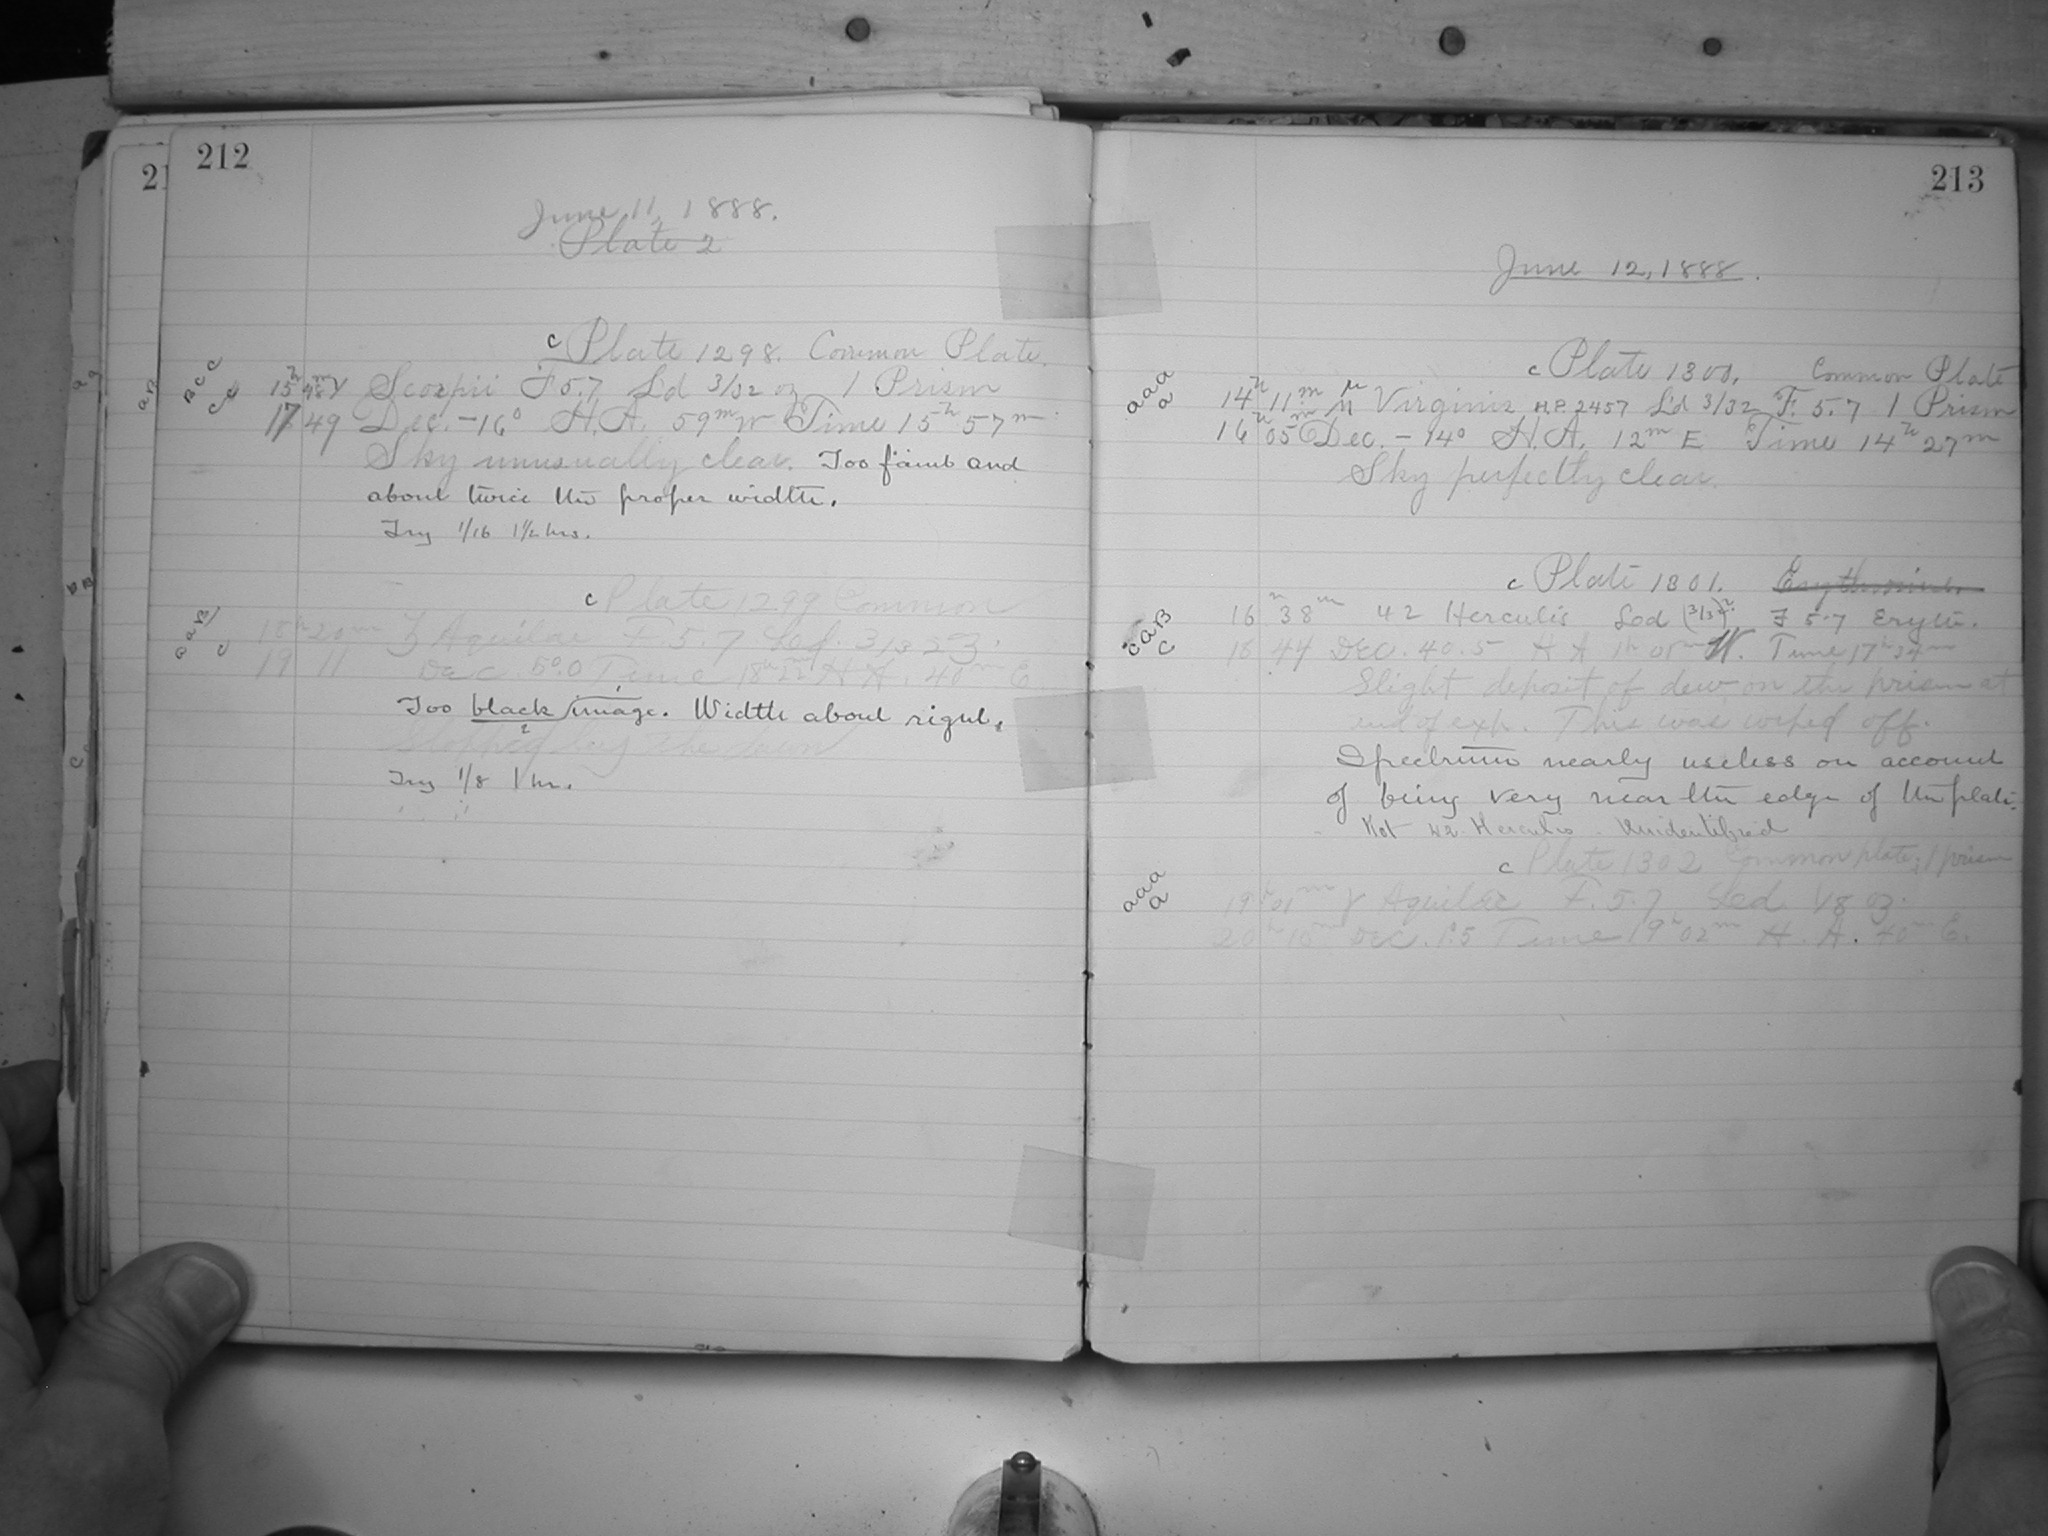 212
June 11, 1888.
Plate 2
c Plate 1298. Common Plate.
B C C 15h 48m γ Scorpii F 5.7 L'd 3/32 oz 1 Prism
17 49 Dec. -16° H.A. 59m W Time 15h 57m
Sky unusually clear. Too faint and
about twice the proper width.
Try 1/16 1 1/2 hrs.
c Plate 1299 Common
a a B 18h 20m Aquilae F. 5.7 Led. 3/32 oz.
c 19 11 Dec. 5°.0 Time 18h 22m H A. 40m E
Too black image. Width about right.
Stopped by the dawn
Try 1/8 1 hr.
213
June 12, 1888.
c Plate 1300. Common Plate
a a a 14h 11m μ Virginis H.P. 2457 L'd 3/32 F. 5.7 1 Prism
a 16h 05m Dec. -14° H.A. 12m E Time 14h 27m
Sky perfectly clear.
c Plate 1301. Erythrosine.
a B 16h 38m 42 Herculis Led (3/32)? F 5.7 Eryth.
c c 18 44 Dec. 40.5 H A 1h W. Time 17h
Slight deposit of dew on the prism at
end of exp. This was wiped off.
Spectrum nearly useless on account
of being very near the edge of the plate.
Not 42 Herculis. Unidentified
c Plate 1302 Common plate; 1 prism
a a a 19h 01m γ Aquilae F. 5.7 Led 1/8 oz.
a 20h 16m Dec. 1°.5 Time 19h 02m H. A. 40m E.